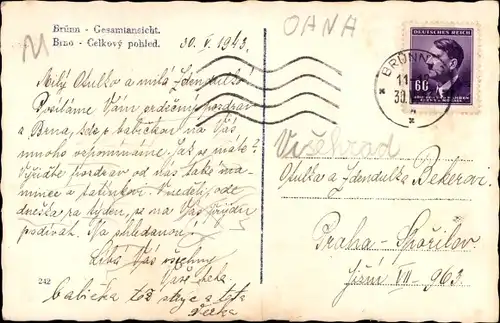 OANA
Brünn - Gesamtansicht.
Brno - Celkový pohled.
30. V. 1943.
DEUTSCHES REICH
60
BRÜNN
11
30.
Milý Otulko a milá Zdendulko
Posíláme Vám srdečný pozdrav
z Brna, kde s babičkou na Vás
mnoho vzpomínáme. Jak se máte?
Vyřiďte pozdrav od nás také ma-
mince a tatínkovi. V neděli, ode
dneška za týden, se na Vás přijdu
podívat. Na shledanou!
Líbá Vás všechny
Vaše
babička též a teta
242
Vyšehrad
Otulka a Zdendulka Bekerovi
Praha - Spořilov
Jižní VII - 963.